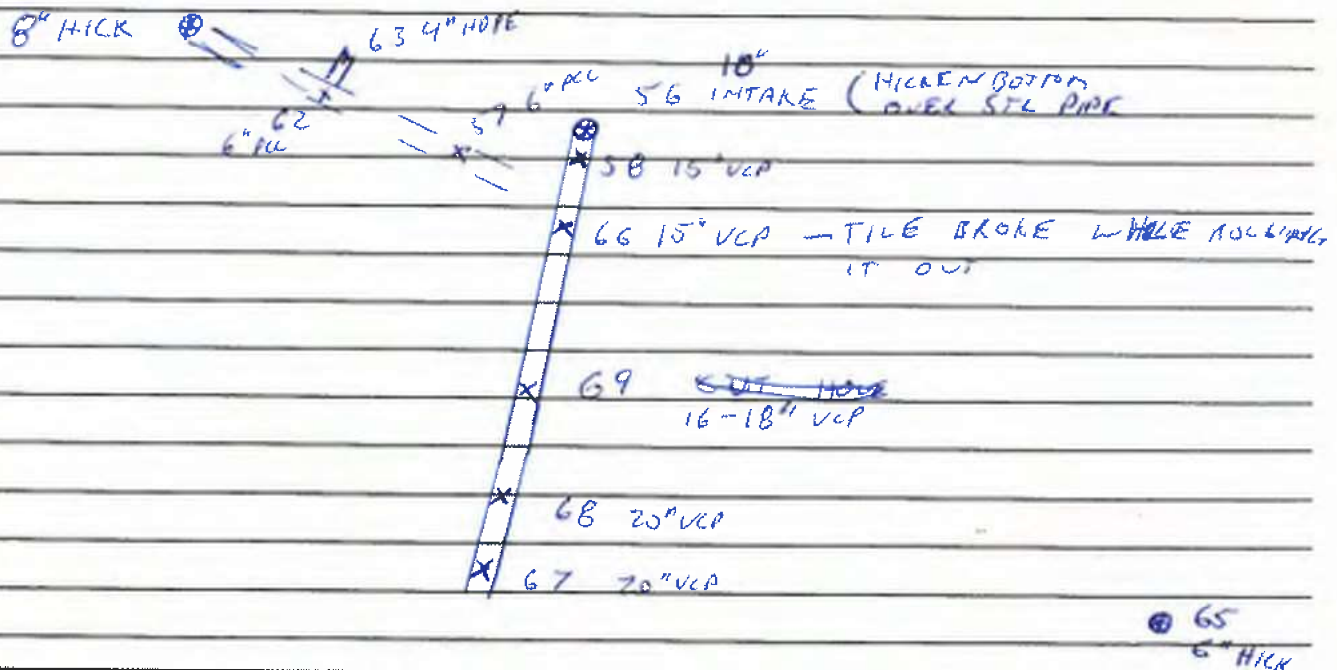 8" HICK
63 4" HDPE
62
6" PCC
57 6" PCC
10"
56 INTAKE (HICKENBOTTOM
OVER STL PIPE
58 15" VCP
66 15" VCP — TILE BROKE WHILE
IT OUT
69
16-18" VCP
68 20" VCP
67 20" VCP
65
6" HICK